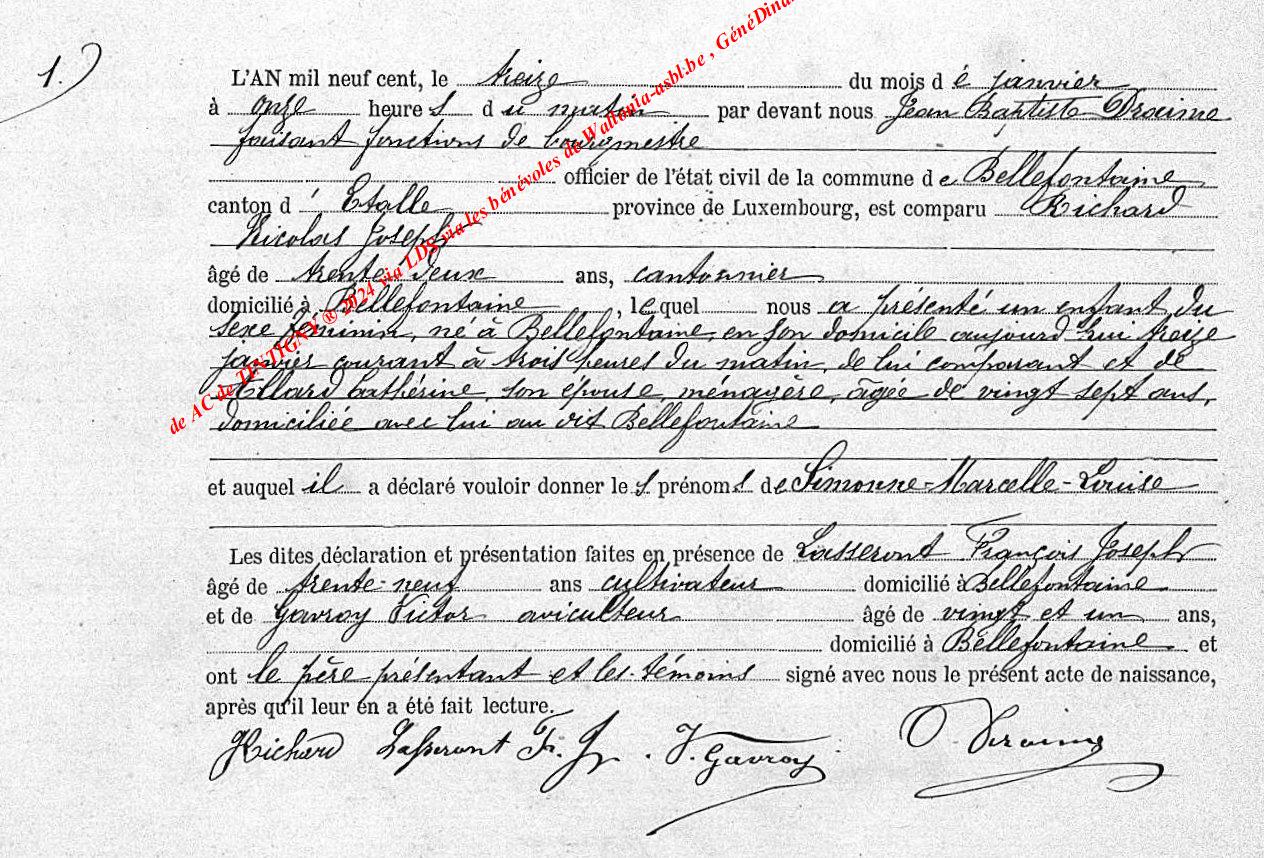 1.)
L'AN mil neuf cent, le treize du mois d e janvier
à onze heure s d u matin par devant nous Jean Baptiste Draime
faisant fonctions de bourgmestre
officier de l'état civil de la commune d e Bellefontaine
canton d' Etalle province de Luxembourg, est comparu Richard
Nicolas Joseph
âgé de trente deux ans, cantonnier
domicilié à Bellefontaine, le quel nous a présenté un enfant du
sexe féminin, né à Bellefontaine, en son domicile aujourd'hui treize
janvier courant à trois heures du matin, de lui comparant et de
Cathérine, son épouse, ménagère, âgée de vingt sept ans,
domiciliée avec lui au dit Bellefontaine
et auquel il a déclaré vouloir donner le s prénom s de Simonne-Marcelle-Louise
Les dites déclaration et présentation faites en présence de Lasseront François Joseph
âgé de trente-neuf ans cultivateur domicilié à Bellefontaine
et de Gavroy Victor aviculteur âgé de vingt et un ans,
domicilié à Bellefontaine et
ont le père présentant et les témoins signé avec nous le présent acte de naissance,
après qu'il leur en a été fait lecture.
Richard Lasseront Fr. J. V. Gavroy Draime
de AC de TINTIGNY ® 2024 via LDS via les bénévoles de Wallonia-asbl.be , GénéDina